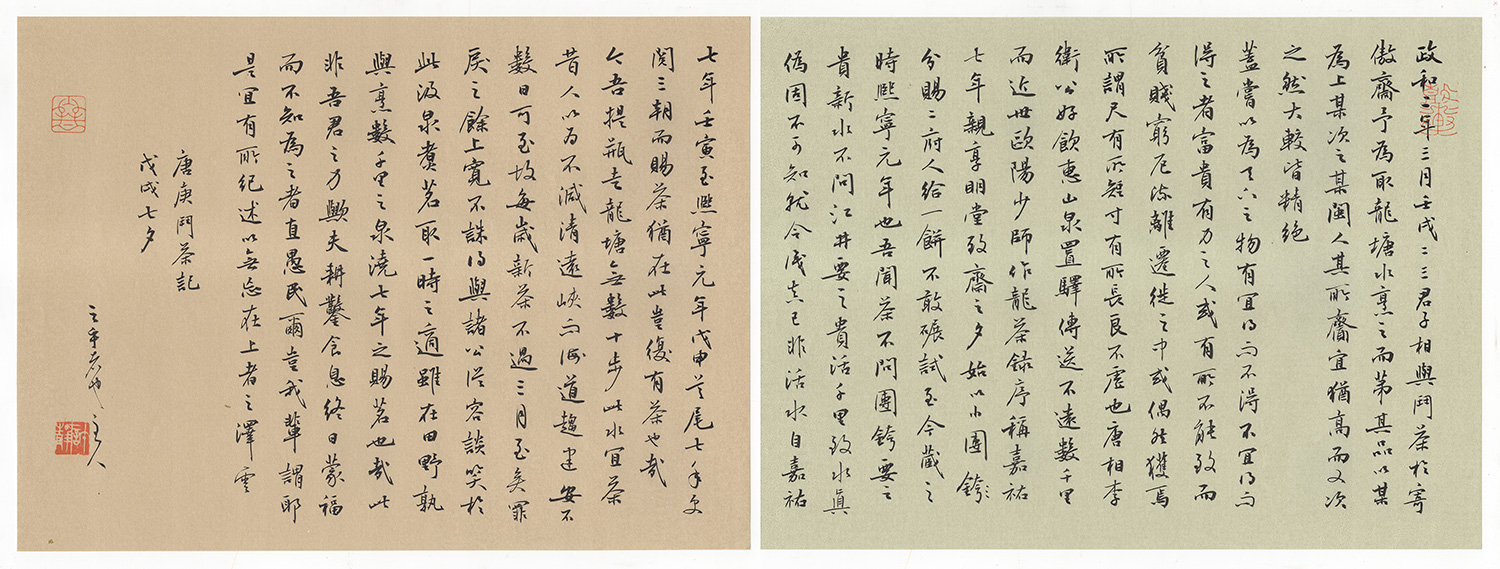 政和二年三月壬戌二三君子相與鬥茶於寄
傲齋予為取龍塘水烹之而第其品以某
為上某次之某閩人其所齎宜猶高而又次
之然大較皆精絕
蓋嘗以為天下之物有宜得而不得不宜得而
得之者富貴有力之人或有所不能致而
貧賤窮厄流離遷徙之中或偶然獲焉
所謂尺有所短寸有所長良不虛也唐相李
衛公好飲惠山泉置驛傳送不遠數千里
而近世歐陽少師作龍茶錄序稱嘉祐
七年親享明堂致齋之夕始以小團銙
分賜二府人給一餅不敢碾試至今藏之
時熙寧元年也吾聞茶不問團銙要之
貴新水不問江井要之貴活千里致水真
偽固不可知就令識真已非活水自嘉祐
七年壬寅至熙寧元年戊申首尾七年更
閱三朝而賜茶猶在此豈復有茶也哉
今吾提瓶走龍塘無數十步此水宜茶
昔人以為不減清遠峽而海道趨建安不
數日可至故每歲新茶不過三月至矣罪
戾之餘上寬不誅得與諸公從容談笑於
此汲泉煮茗取一時之適雖在田野孰
與烹數千里之泉澆七年之賜茗也哉此
非吾君之力歟夫耕鑿食息終日蒙福
而不知為之者直愚民爾豈我輩謂耶
是宜有所紀述以無忘在上者之澤云
唐庚鬥茶記
戊戌七夕
之乎者也主人